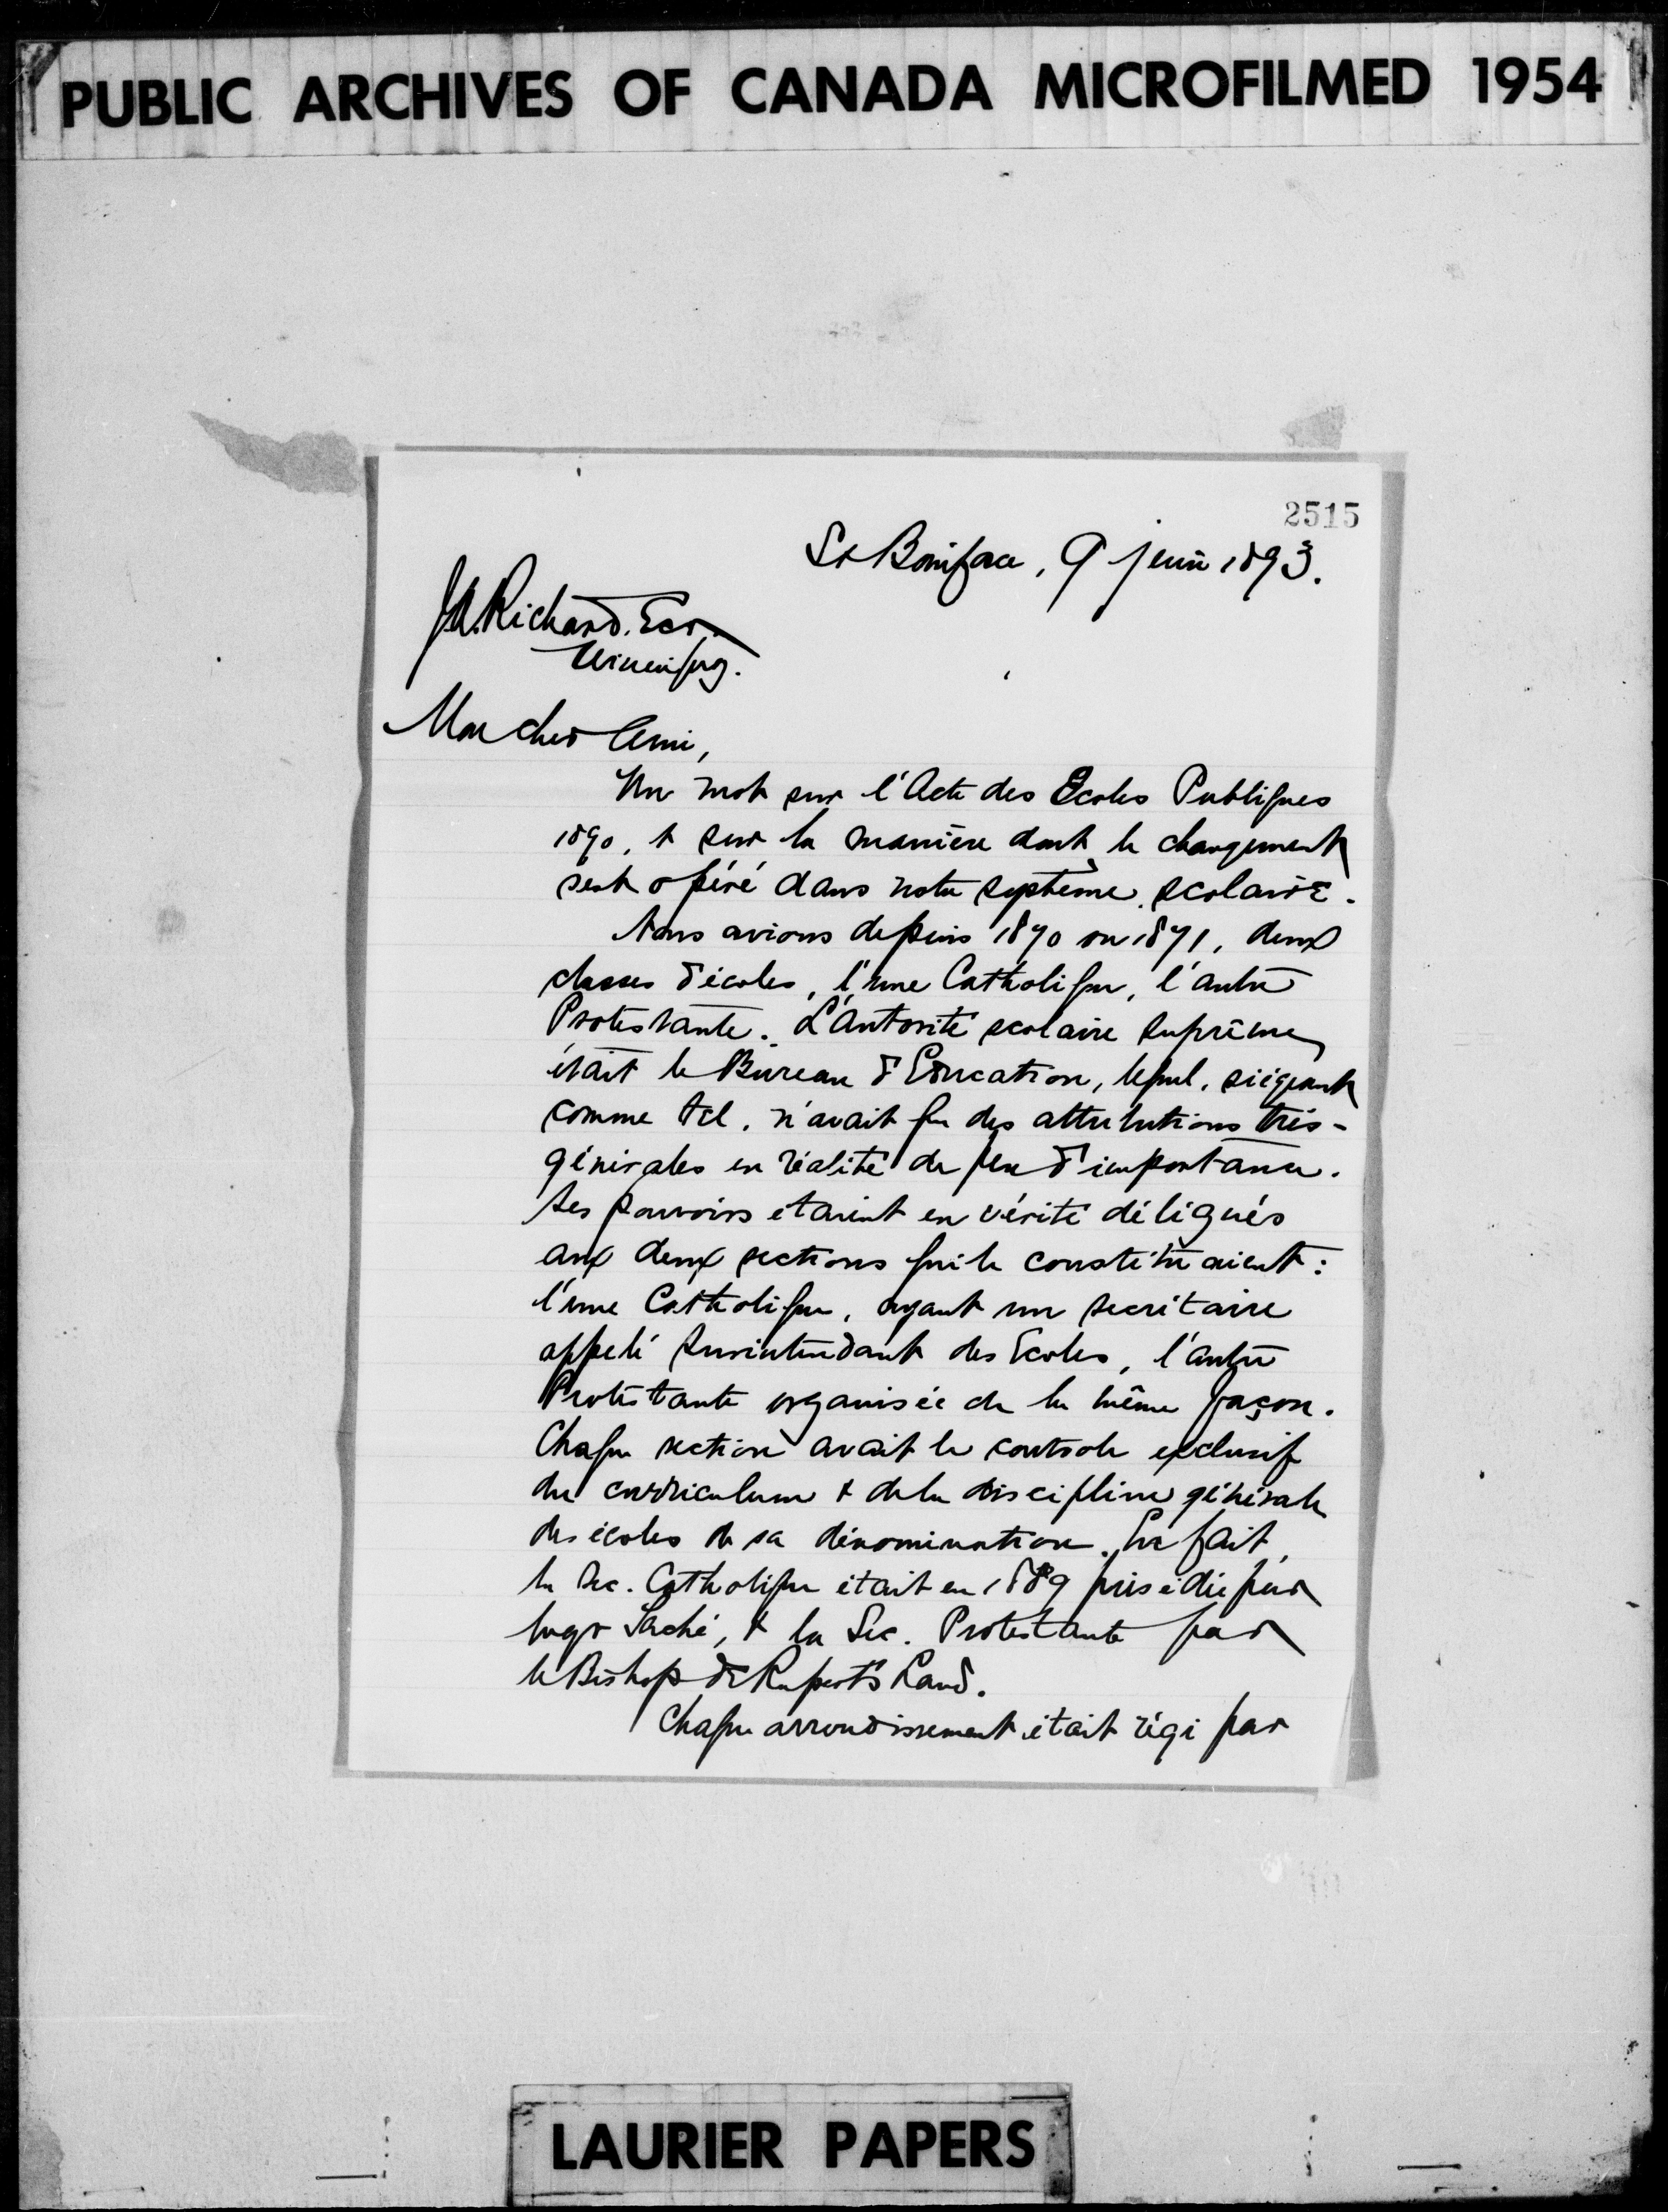 PUBLIC ARCHIVES OF CANADA MICROFILMED 1954
2515
St Boniface, 9 juin 1893.
J.A. Richard. Ecr.
Winnipeg.
Mon cher Ami,
Un mot sur l'Acte des Ecoles Publiques
1890, & sur la manière dont le changement
s'est opéré dans notre système scolaire.
Nous avions depuis 1870 ou 1871, deux
classes d'écoles, l'une Catholique, l'autre
Protestante. L'autorité scolaire suprême
était le Bureau d'Education, lequel, siégeant
comme tel, n'avait que des attributions très-
générales en réalité de peu d'importance.
Ses pouvoirs etaient en vérité délégués
aux deux sections qui le constituaient:
l'une Catholique, ayant un secrétaire
appelé Surintendant des Ecoles, l'autre
Protestante organisée de la même façon.
Chaque section avait le controle exclusif
du curriculum & de la discipline générale
des écoles de sa dénomination. En fait,
la Sec. Catholique était en 1889 présidée par
Mgr Taché, & la Sec. Protestante par
le Bishop de Rupert's Land.
Chaque arrondissement était régi par
LAURIER PAPERS